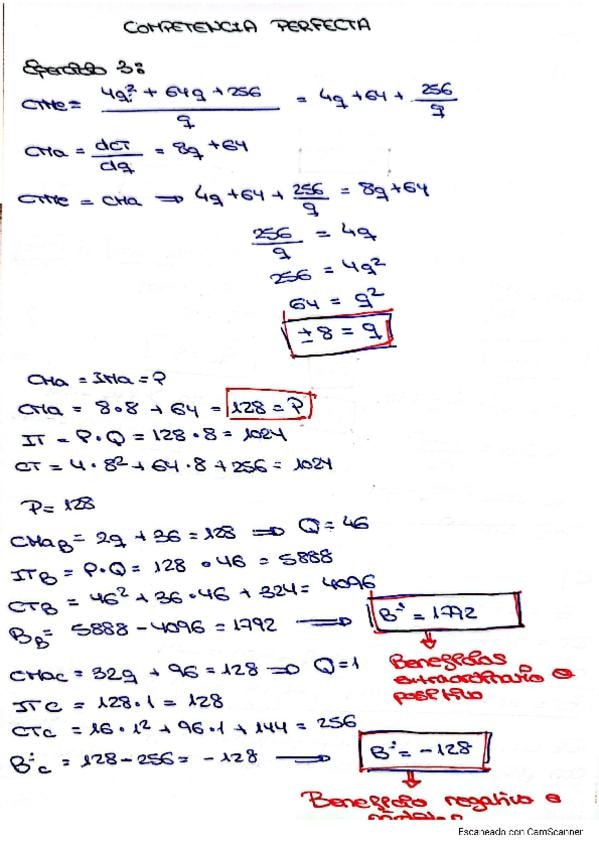 COMPETENCIA PERFECTA
Ejercicio 3:
CMe = 4q² + 64q + 256 / q = 4q + 64 + 256/q
CMa = dCT/dq = 8q + 64
CMe = CMa ⇒ 4q + 64 + 256/q = 8q + 64
256/q = 4q
256 = 4q²
64 = q²
± 8 = q
CMa = IMa = P
CMa = 8·8 + 64 = 128 = P
IT = P·Q = 128·8 = 1024
CT = 4·8² + 64·8 + 256 = 1024
P = 128
CMaB = 2q + 36 = 128 ⇒ Q = 46
ITB = P·Q = 128·46 = 5888
CTB = 46² + 36·46 + 324 = 4096
BB = 5888 - 4096 = 1792 → Bº = 1792
Beneficios extraordinario o positivo
CMac = 32q + 96 = 128 ⇒ Q = 1
ITc = 128·1 = 128
CTc = 16·1² + 96·1 + 144 = 256
Bºc = 128 - 256 = -128 → Bº = -128
Beneficio negativo o
Escaneado con CamScanner